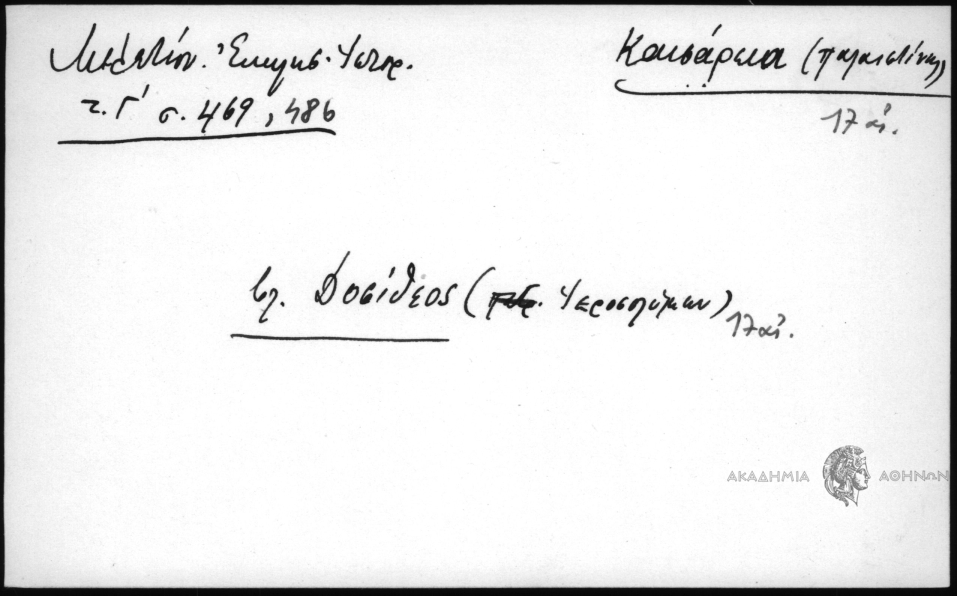 Μελετίου. Ἐκκλησ. Ἱστορ.
τ. Γ' σ. 469, 486
Καισάρεια (Παλαιστίνης)
17 αἰ.
βλ. Δοσίθεος (πατρ. Ἱεροσολύμων)
17 αἰ.
ΑΚΑΔΗΜΙΑ ΑΘΗΝΩΝ